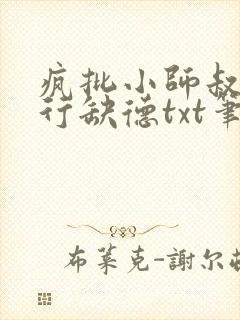 疯批小師叔
行缺德txt筆
布莱克-謝尔